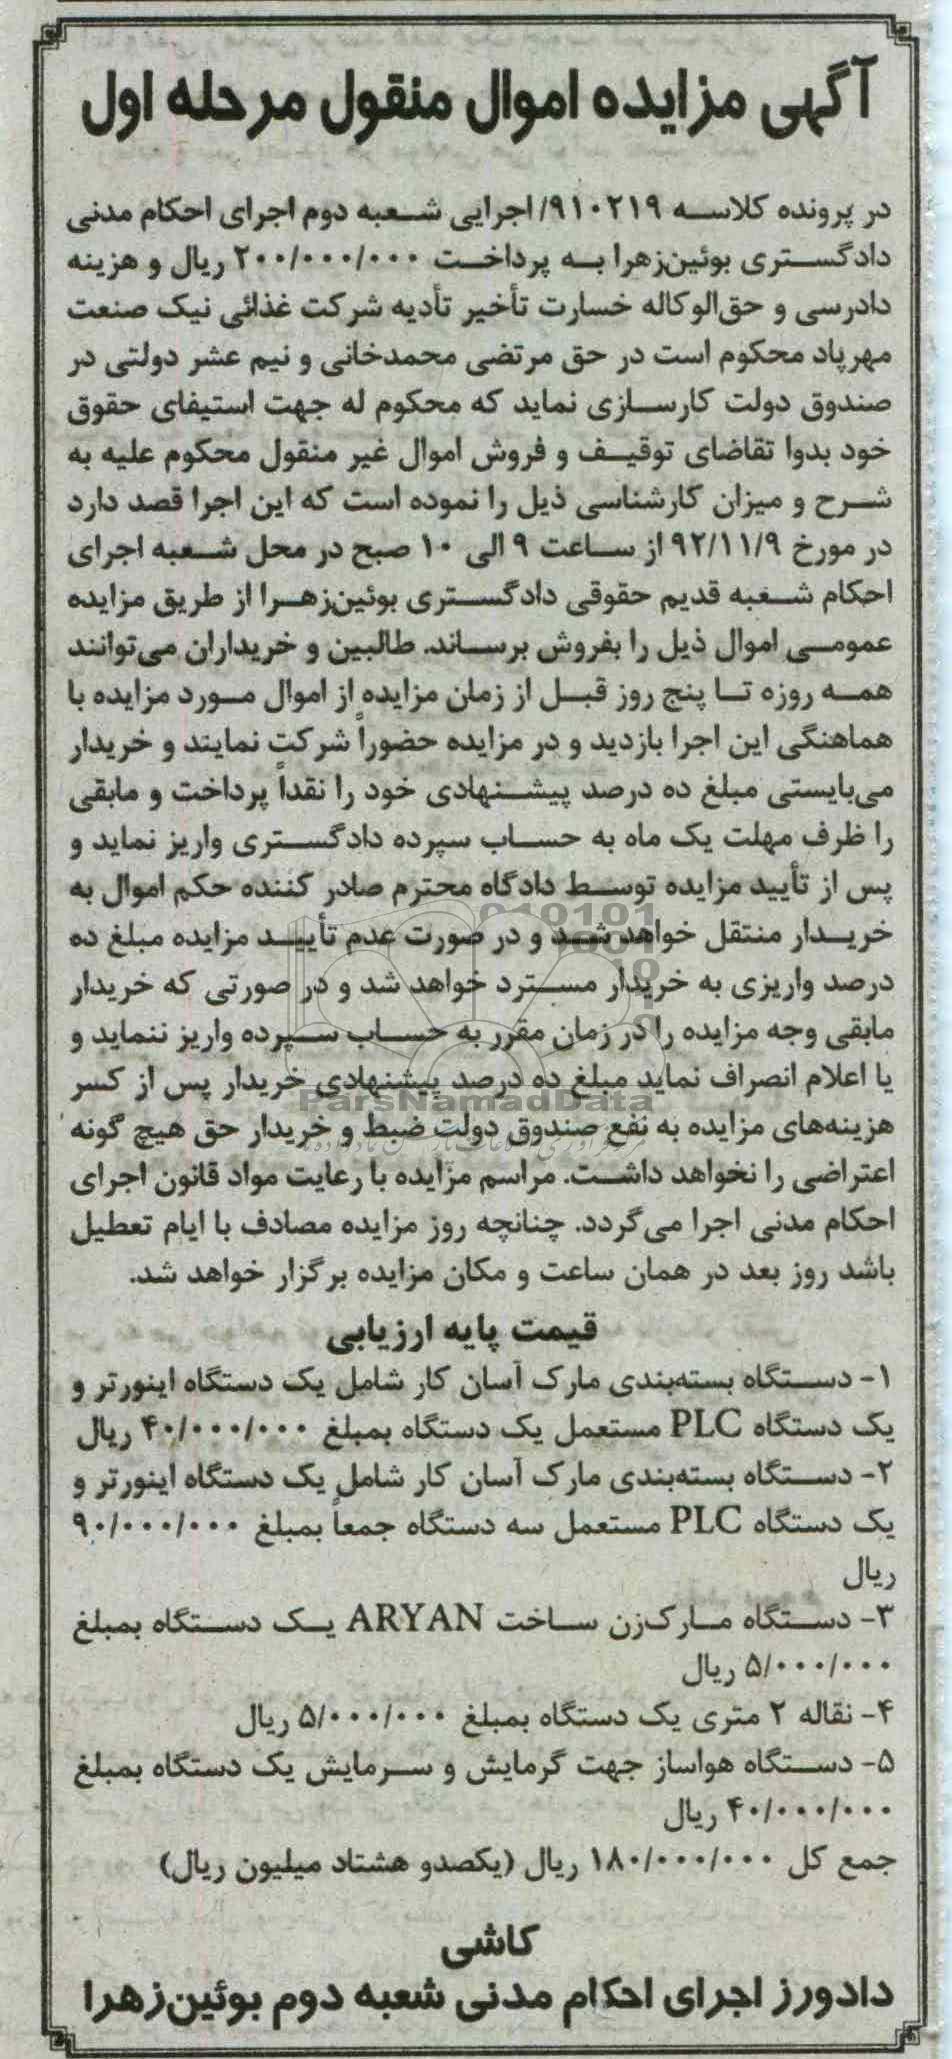 آگهی مزایده اموال منقول مرحله اول
در پرونده کلاسه ۹۱۰۲۱۹/اجرایی شعبه دوم اجرای احکام مدنی
دادگستری بوئین‌زهرا به پرداخت ۲۰۰/۰۰۰/۰۰۰ ریال و هزینه
دادرسی و حق‌الوکاله خسارت تأخیر تأدیه شرکت غذائی نیک صنعت
مهرپاد محکوم است در حق مرتضی محمدخانی و نیم عشر دولتی در
صندوق دولت کارسازی نماید که محکوم له جهت استیفای حقوق
خود بدوا تقاضای توقیف و فروش اموال غیر منقول محکوم علیه به
شرح و میزان کارشناسی ذیل را نموده است که این اجرا قصد دارد
در مورخ ۹۲/۱۱/۹ از ساعت ۹ الی ۱۰ صبح در محل شعبه اجرای
احکام شعبه قدیم حقوقی دادگستری بوئین‌زهرا از طریق مزایده
عمومی اموال ذیل را بفروش برساند. طالبین و خریداران می‌توانند
همه روزه تا پنج روز قبل از زمان مزایده از اموال مورد مزایده با
هماهنگی این اجرا بازدید و در مزایده حضوراً شرکت نمایند و خریدار
می‌بایستی مبلغ ده درصد پیشنهادی خود را نقداً پرداخت و مابقی
را ظرف مهلت یک ماه به حساب سپرده دادگستری واریز نماید و
پس از تأیید مزایده توسط دادگاه محترم صادر کننده حکم اموال به
خریدار منتقل خواهد شد و در صورت عدم تأیید مزایده مبلغ ده
درصد واریزی به خریدار مسترد خواهد شد و در صورتی که خریدار
مابقی وجه مزایده را در زمان مقرر به حساب سپرده واریز ننماید و
یا اعلام انصراف نماید مبلغ ده درصد پیشنهادی خریدار پس از کسر
ParsNamadData
هزینه‌های مزایده به نفع صندوق دولت ضبط و خریدار حق هیچ گونه
اعتراضی را نخواهد داشت. مراسم مزایده با رعایت مواد قانون اجرای
احکام مدنی اجرا می‌گردد. چنانچه روز مزایده مصادف با ایام تعطیل
باشد روز بعد در همان ساعت و مکان مزایده برگزار خواهد شد.
قیمت پایه ارزیابی
۱- دستگاه بسته‌بندی مارک آسان کار شامل یک دستگاه اینورتر و
یک دستگاه PLC مستعمل یک دستگاه بمبلغ ۴۰/۰۰۰/۰۰۰ ریال
۲- دستگاه بسته‌بندی مارک آسان کار شامل یک دستگاه اینورتر و
یک دستگاه PLC مستعمل سه دستگاه جمعاً بمبلغ ۹۰/۰۰۰/۰۰۰
ریال
۳- دستگاه مارک‌زن ساخت ARYAN یک دستگاه بمبلغ
۵/۰۰۰/۰۰۰ ریال
۴- نقاله ۲ متری یک دستگاه بمبلغ ۵/۰۰۰/۰۰۰ ریال
۵- دستگاه هواساز جهت گرمایش و سرمایش یک دستگاه بمبلغ
۴۰/۰۰۰/۰۰۰ ریال
جمع کل ۱۸۰/۰۰۰/۰۰۰ ریال (یکصدو هشتاد میلیون ریال)
کاشی
دادورز اجرای احکام مدنی شعبه دوم بوئین‌زهرا